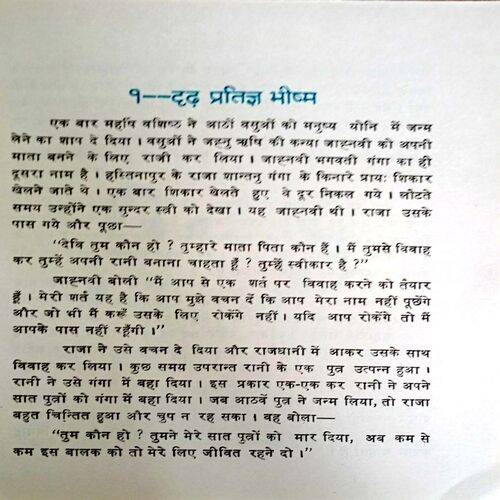 १--दृढ़ प्रतिज्ञ भीष्म
एक बार महर्षि वशिष्ठ ने आठों वसुओं को मनुष्य योनि में जन्म
लेने का शाप दे दिया। वसुओं ने जह्नु ऋषि की कन्या जाह्नवी को अपनी
माता बनने के लिए राजी कर लिया। जाह्नवी भगवती गंगा का ही
दूसरा नाम है। हस्तिनापुर के राजा शान्तनु गंगा के किनारे प्रायः शिकार
खेलने जाते थे। एक बार शिकार खेलते हुए वे दूर निकल गये। लौटते
समय उन्होंने एक सुन्दर स्त्री को देखा। यह जाह्नवी थी। राजा उसके
पास गये और पूछा—
“देवि तुम कौन हो? तुम्हारे माता पिता कौन हैं। मैं तुमसे विवाह
कर तुम्हें अपनी रानी बनाना चाहता हूँ? तुम्हें स्वीकार है?”
जाह्नवी बोली “मैं आप से एक शर्त पर विवाह करने को तैयार
हूँ। मेरी शर्त यह है कि आप मुझे वचन दें कि आप मेरा नाम नहीं पूछेंगे
और जो भी मैं करूँ उसके लिए रोकेंगे नहीं। यदि आप रोकेंगे तो मैं
आपके पास नहीं रहूँगी।”
राजा ने उसे वचन दे दिया और राजधानी में आकर उसके साथ
विवाह कर लिया। कुछ समय उपरान्त रानी के एक पुत्र उत्पन्न हुआ।
रानी ने उसे गंगा में बहा दिया। इस प्रकार एक-एक कर रानी ने अपने
सात पुत्रों को गंगा में बहा दिया। जब आठवें पुत्र ने जन्म लिया, तो राजा
बहुत चिन्तित हुआ और चुप न रह सका। वह बोला—
“तुम कौन हो? तुमने मेरे सात पुत्रों को मार दिया, अब कम से
कम इस बालक को तो मेरे लिए जीवित रहने दो।”